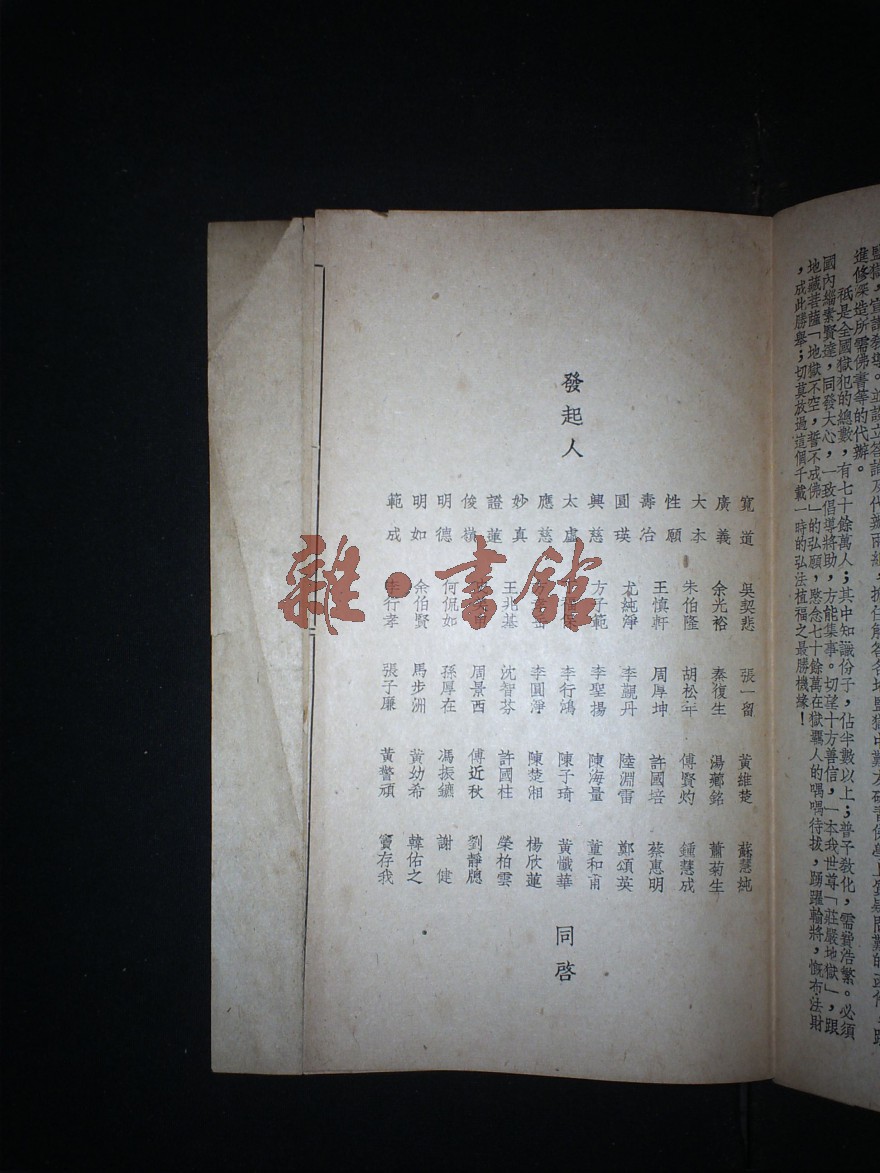 監獄，宣講教導。並設立答請及代辦兩組，擔任解答各地監獄中難友研習佛學上疑問難的函件，
進修深造所需佛書等的代辦。
祇是全國獄犯的總數，有七十餘萬人；其中知識份子，佔半數以上；普予敎化，需費浩繁。必須
國內緇素賢達，同發大心，一致倡導將助，方能集事。切望十方善信，一本我世尊「莊嚴地獄」，跟
地藏菩薩「地獄不空，誓不成佛」的弘願，愍念七十餘萬在獄羈人的喁喁待拔，踴躍輸將，慨布法財
，成此勝舉；切莫放過這個千載一時的弘法植福之最勝機緣！
發起人
寬道 吳契悲 張一留 黃維楚 蘇慧純
廣義 余光裕 秦復生 湯薌銘 蕭菊生
大本 朱伯隆 胡松年 傅賢灼 鍾慧成
性願 王慎軒 周厚坤 許國培 蔡惠明
壽冶 尤純淨 李觀丹 陸淵雷 鄭頌英
圓瑛 方子範 李聖揚 陳海量 董和甫
興慈 李行鴻 陳子琦 黃懺華
太虛 李圓淨 陳楚湘 楊欣蓮
應慈 王兆基 沈智芬 許國柱 榮柏雲
妙真 周景西 傅近秋 劉靜牕
證蓮 何侃如 孫厚在 馮振鑣 謝健
俊嶺 余伯賢 馬步洲 黃幼希 韓佑之
明德 李行孝 張子廉 黃警頑 竇存我
明如
範成
同啓
雜·書館